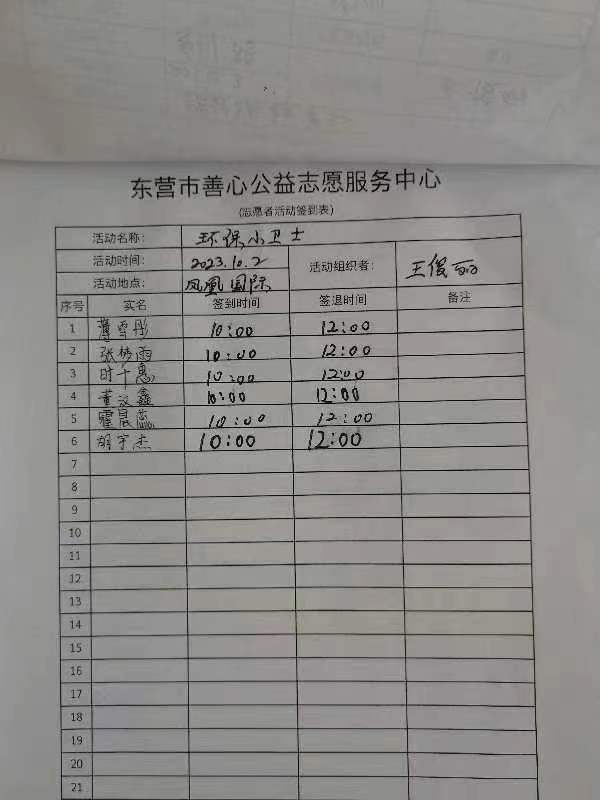 东营市善心公益志愿服务中心
(志愿者活动签到表)
活动名称: 环保小卫士
活动时间: 2023.10.2 活动组织者: 王俊丽
活动地点: 凤凰国际
序号 实名 签到时间 签退时间 备注
1 薄雪彤 10:00 12:00
2 张梦雨 10:00 12:00
3 时千惠 10:00 12:00
4 董汶鑫 10:00 12:00
5 霍晨蕊 10:00 12:00
6 胡宇杰 10:00 12:00
7
8
9
10
11
12
13
14
15
16
17
18
19
20
21